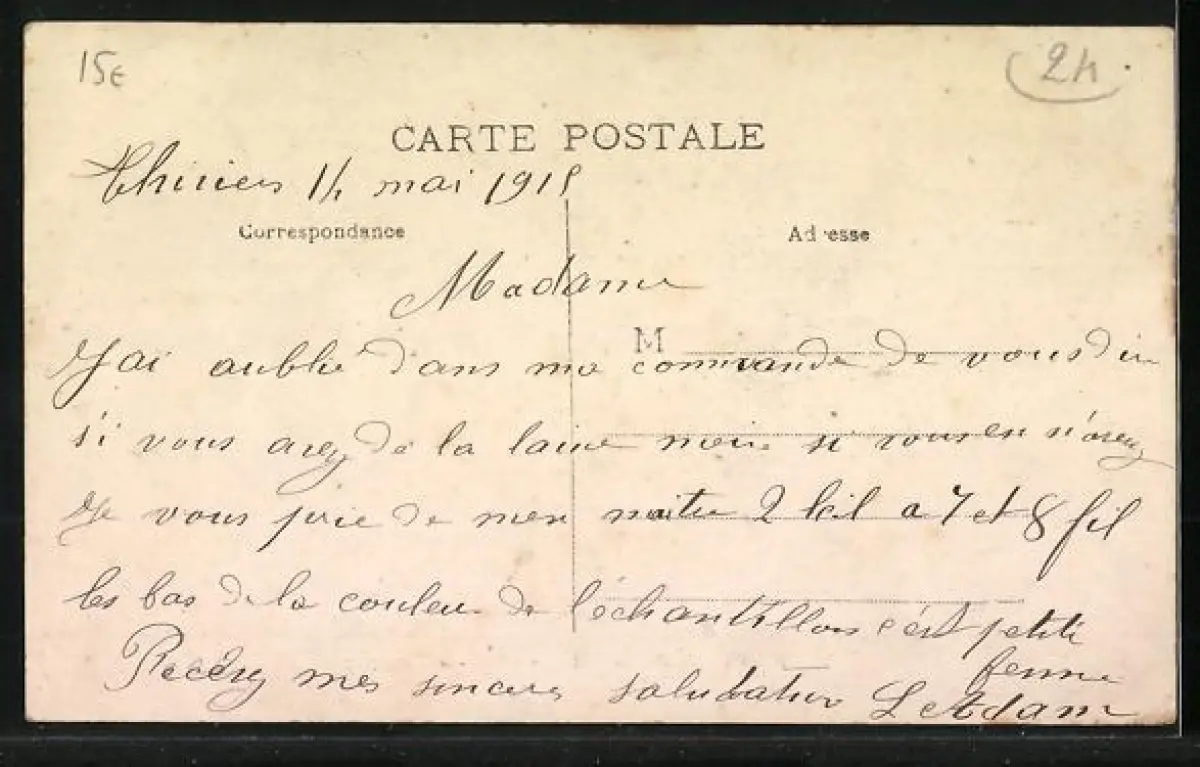 15€
24
CARTE POSTALE
Thiviers 14 mai 1915
Correspondance
Adresse
Madame
M
J'ai oublié dans ma commande de vous dire
si vous avez de la laine noire si vous en n'avez
Je vous prie de men maitre 2 kil a 7 et 8 fil
les bas de la couleur de l'échantillon c'est petite
femme
Recevez mes sinceres salutation L Adam